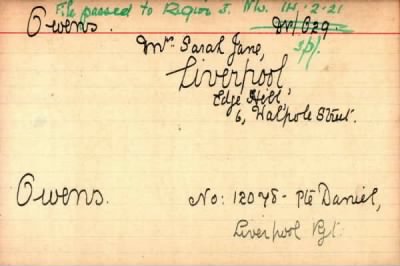 File passed to Region 5. No. 14.2.21
Owens.
Mrs. Sarah Jane,
Liverpool,
Edge Hill,
6, Walpole Street.
Owens.
No: 12075 - Pte Daniel,
Liverpool Rgt.